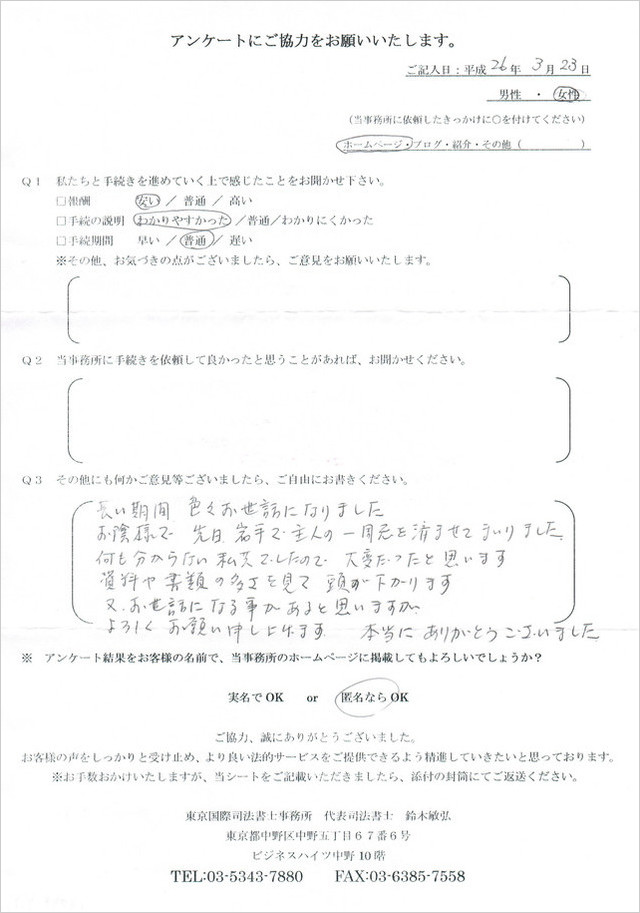 アンケートにご協力をお願いいたします。
ご記入日:平成 26年 3月23日
男性 ・ 女性
(当事務所に依頼したきっかけに○を付けてください)
ホームページ・ブログ・紹介・その他( )
Q1 私たちと手続きを進めていく上で感じたことをお聞かせ下さい。
□報酬 安い / 普通 / 高い
□手続の説明 わかりやすかった /普通/わかりにくかった
□手続期間 早い / 普通 / 遅い
※その他、お気づきの点がございましたら、ご意見をお願いいたします。
Q2 当事務所に手続きを依頼して良かったと思うことがあれば、お聞かせください。
Q3 その他にも何かご意見等ございましたら、ご自由にお書きください。
長い期間 色々お世話になりました
お陰様で 先日 岩手で主人の一周忌を済ませてまいりました
何も分からない私共でしたので 大変だったと思います
資料や書類の多さを見て 頭が下がります
又、お世話になる事があると思いますが、
よろしくお願い申し上げます 本当にありがとうございました
※ アンケート結果をお客様の名前で、当事務所のホームページに掲載してもよろしいでしょうか?
実名でOK or 匿名ならOK
ご協力、誠にありがとうございました。
お客様の声をしっかりと受け止め、より良い法的サービスをご提供できるよう精進していきたいと思っております。
※お手数おかけいたしますが、当シートをご記載いただきましたら、添付の封筒にてご返送ください。
東京国際司法書士事務所 代表司法書士 鈴木敏弘
東京都中野区中野五丁目67番6号
ビジネスハイツ中野10階
TEL:03-5343-7880 FAX:03-6385-7558